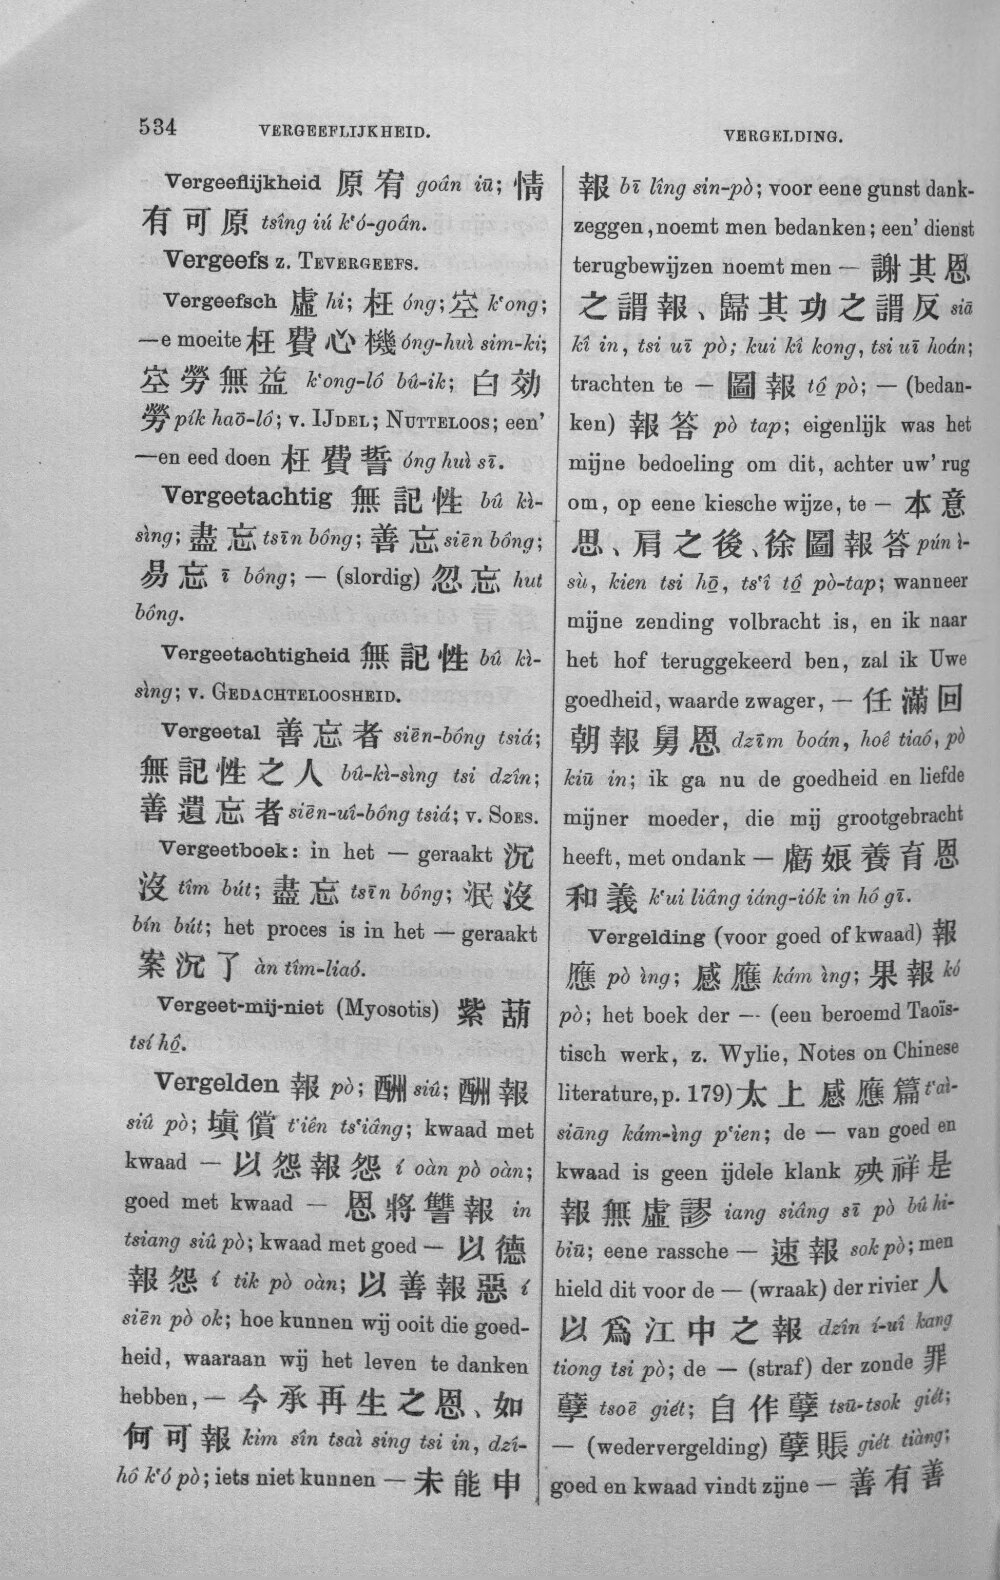 534
VERGEEFLIJKHEID.
VERGELDING.
Vergeeflijkheid 原宥 goân iū; 情
有可原 tsîng iú k‘ó-goân.
Vergeefs z. TEVERGEEFS.
Vergeefsch 虛 hi; 枉 óng; 空 k‘ong;
—e moeite 枉費心機 óng-huì sim-ki;
空勞無益 k‘ong-lô bû-ik; 白効
勞 pík haō-lô; v. IJDEL; NUTTELOOS; een’
—en eed doen 枉費誓 óng huì sī.
Vergeetachtig 無記性 bû kì-
sìng; 盡忘 tsīn bông; 善忘 siēn bông;
易忘 ī bông; — (slordig) 忽忘 hut
bông.
Vergeetachtigheid 無記性 bû kì-
sìng; v. GEDACHTELOOSHEID.
Vergeetal 善忘者 siēn-bông tsiá;
無記性之人 bû-kì-sìng tsi dzîn;
善遺忘者 siēn-uî-bông tsiá; v. SOES.
Vergeetboek: in het — geraakt 沉
沒 tîm bút; 盡忘 tsīn bông; 泯沒
bín bút; het proces is in het — geraakt
案沉了 àn tîm-liaó.
Vergeet-mij-niet (Myosotis) 紫葫
tsí hô̤.
Vergelden 報 pò; 酬 siû; 酬報
siû pò; 塡償 t‘iên ts‘iâng; kwaad met
kwaad — 以怨報怨 í oàn pò oàn;
goed met kwaad — 恩將讐報 in
tsiang siû pò; kwaad met goed — 以德
報怨 í tik pò oàn; 以善報惡 í
siēn pò ok; hoe kunnen wij ooit die goed-
heid, waaraan wij het leven te danken
hebben, — 今承再生之恩、如
何可報 kim sîn tsaì sing tsi in, dzî-
hô k‘ó pò; iets niet kunnen — 未能申
報 bī lîng sin-pò; voor eene gunst dank-
zeggen, noemt men bedanken; een’ dienst
terugbewijzen noemt men — 謝其恩
之謂報、歸其功之謂反 siā
kî in, tsi uī pò; kui kî kong, tsi uī hoán;
trachten te — 圖報 tô̤ pò; — (bedan-
ken) 報答 pò tap; eigenlijk was het
mijne bedoeling om dit, achter uw’ rug
om, op eene kiesche wijze, te — 本意
思、肩之後、徐圖報答 pún ì-
sù, kien tsi hō̤, ts‘î tô̤ pò-tap; wanneer
mijne zending volbracht is, en ik naar
het hof teruggekeerd ben, zal ik Uwe
goedheid, waarde zwager, — 任滿回
朝報舅恩 dzīm boán, hoê tiaô, pò
kiū in; ik ga nu de goedheid en liefde
mijner moeder, die mij grootgebracht
heeft, met ondank — 虧娘養育恩
和義 k‘ui liâng iáng-iók in hô gī.
Vergelding (voor goed of kwaad) 報
應 pò ìng; 感應 kám ìng; 果報 kó
pò; het boek der — (een beroemd Taoïs-
tisch werk, z. Wylie, Notes on Chinese
literature, p. 179) 太上感應篇 t‘aì-
siāng kám-ìng p‘ien; de — van goed en
kwaad is geen ijdele klank 殃祥是
報無虛謬 iang siâng sī pò bû hi-
biū; eene rassche — 速報 sok pò; men
hield dit voor de — (wraak) der rivier 人
以爲江中之報 dzîn í-uî kang
tiong tsi pò; de — (straf) der zonde 罪
孽 tsoē giét; 自作孽 tsū-tsok giét;
— (wedervergelding) 孽賬 giét tiàng;
goed en kwaad vindt zijne — 善有善